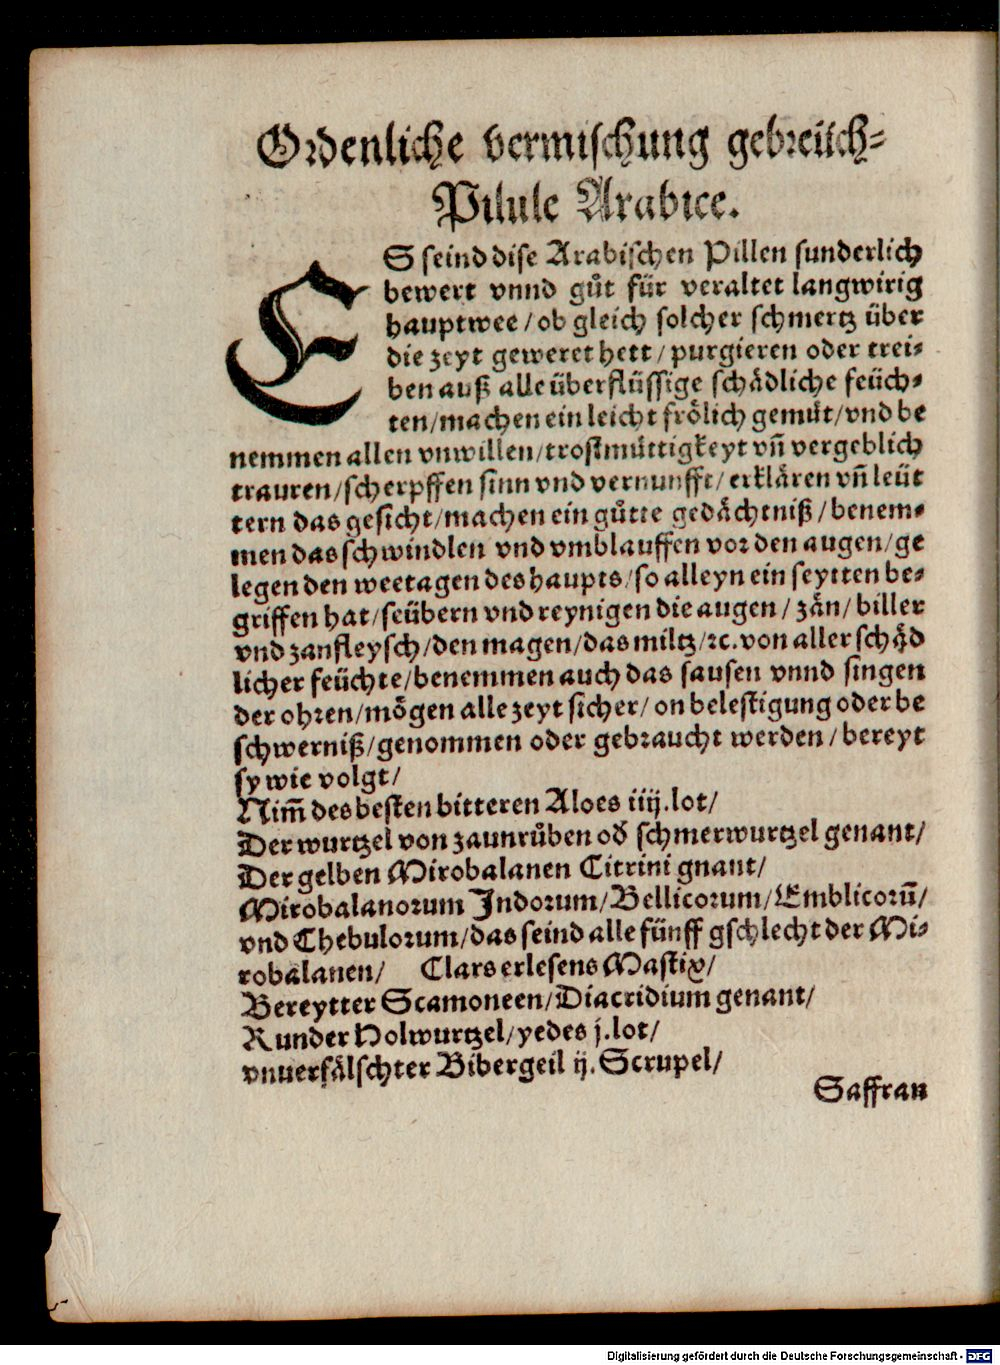 Ordenliche vermischung gebreüch⸗
Pilule Arabice.
ES seind dise Arabischen Pillen sunderlich
bewert vnnd gůt für veraltet langwirig
hauptwee/ob gleich solcher schmertz über
die zeyt geweret hett/purgieren oder trei⸗
ben auß alle überflüssige schädliche feüch⸗
ten/machen ein leicht frölich gemüt/vnd be
nemmen allen vnwillen/trostmüttigkeyt vñ vergeblich
trauren/scherpffen sinn vnd vernunfft/erklären vñ leüt
tern das gesicht/machen ein gůtte gedächtniß/benem⸗
men das schwindlen vnd vmblauffen vor den augen/ge
legen den weetagen des haupts/so alleyn ein seytten be⸗
griffen hat/seübern vnd reynigen die augen/zän/biller
vnd zanfleysch/den magen/das miltz/ꝛc.von aller schäd
licher feüchte/benemmen auch das sausen vnnd singen
der ohren/mögen alle zeyt sicher/on belestigung oder be
schwerniß/genommen oder gebraucht werden/bereyt
sy wie volgt/
Nim̃ des besten bitteren Aloes iiij.lot/
Der wurtzel von zaunrůben od̕ schmerwurtzel genant/
Der gelben Mirobalanen Citrini gnant/
Mirobalanorum Indorum/Bellicorum/Emblicorū/
vnd Chebulorum/das seind alle fünff gschlecht der Mi⸗
robalanen/ Clars erlesens Mastix/
Bereytter Scamoneen/Diacridium genant/
Runder Holwurtzel/yedes j.lot/
vnuerfälschter Bibergeil ij.Scrupel/
Saffran
Digitalisierung gefördert durch die Deutsche Forschungsgemeinschaft - DFG